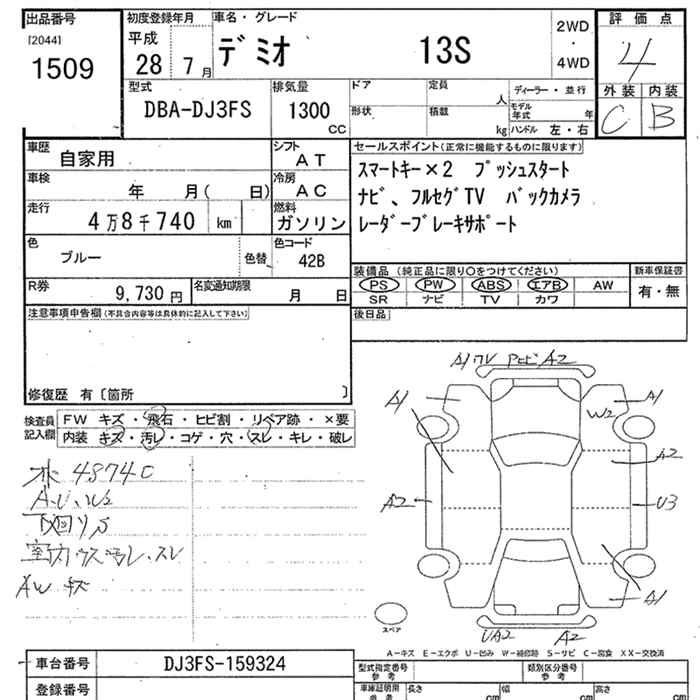 出品番号 初度登録年月 車名・グレード 評価点
[2044]
1509
平成
28 7月
デミオ 13S
2WD
・
4WD
4
外装 内装
C B
型式 排気量 ドア 定員 ディーラー・並行
DBA-DJ3FS 1300 人 モデル年式 年
CC 形状 積載 kg ハンドル 左・右
車歴 自家用 シフト AT
車検 年 月( 日) 冷房 AC
走行 4万8千740 km 燃料 ガソリン
色 ブルー 色替 色コード 42B
R券 9,730円 名変通知期限 月 日
セールスポイント(正常に機能するものに限ります)
スマートキー×2 プッシュスタート
ナビ、フルセグTV バックカメラ
レーダーブレーキサポート
装備品(純正品に限り○をつけてください) 新車保証書
PS PW ABS エアB AW 有・無
SR ナビ TV カワ
後日品
注意事項申告欄(不具合内容等は具体的に記入して下さい)
修復歴 有〔箇所 〕
検査員記入欄
FW キズ・飛石・ヒビ割・リペア跡・×要
内装 キズ・汚レ・コゲ・穴・スレ・キレ・破レ
48740
A.U.W2
下回リS
AW キズ
A1 A2
A1
A1
W2
A2
A2
U3
A1
UA2 A2
スペア
A−キズ E−エクボ U−凹み W−補修跡 S−サビ C−腐食 XX−交換済
車台番号 DJ3FS-159324
登録番号
型式指定番号 参考 類別区分番号 参考
車庫証明用 参考 長さ cm 幅 cm 高さ cm